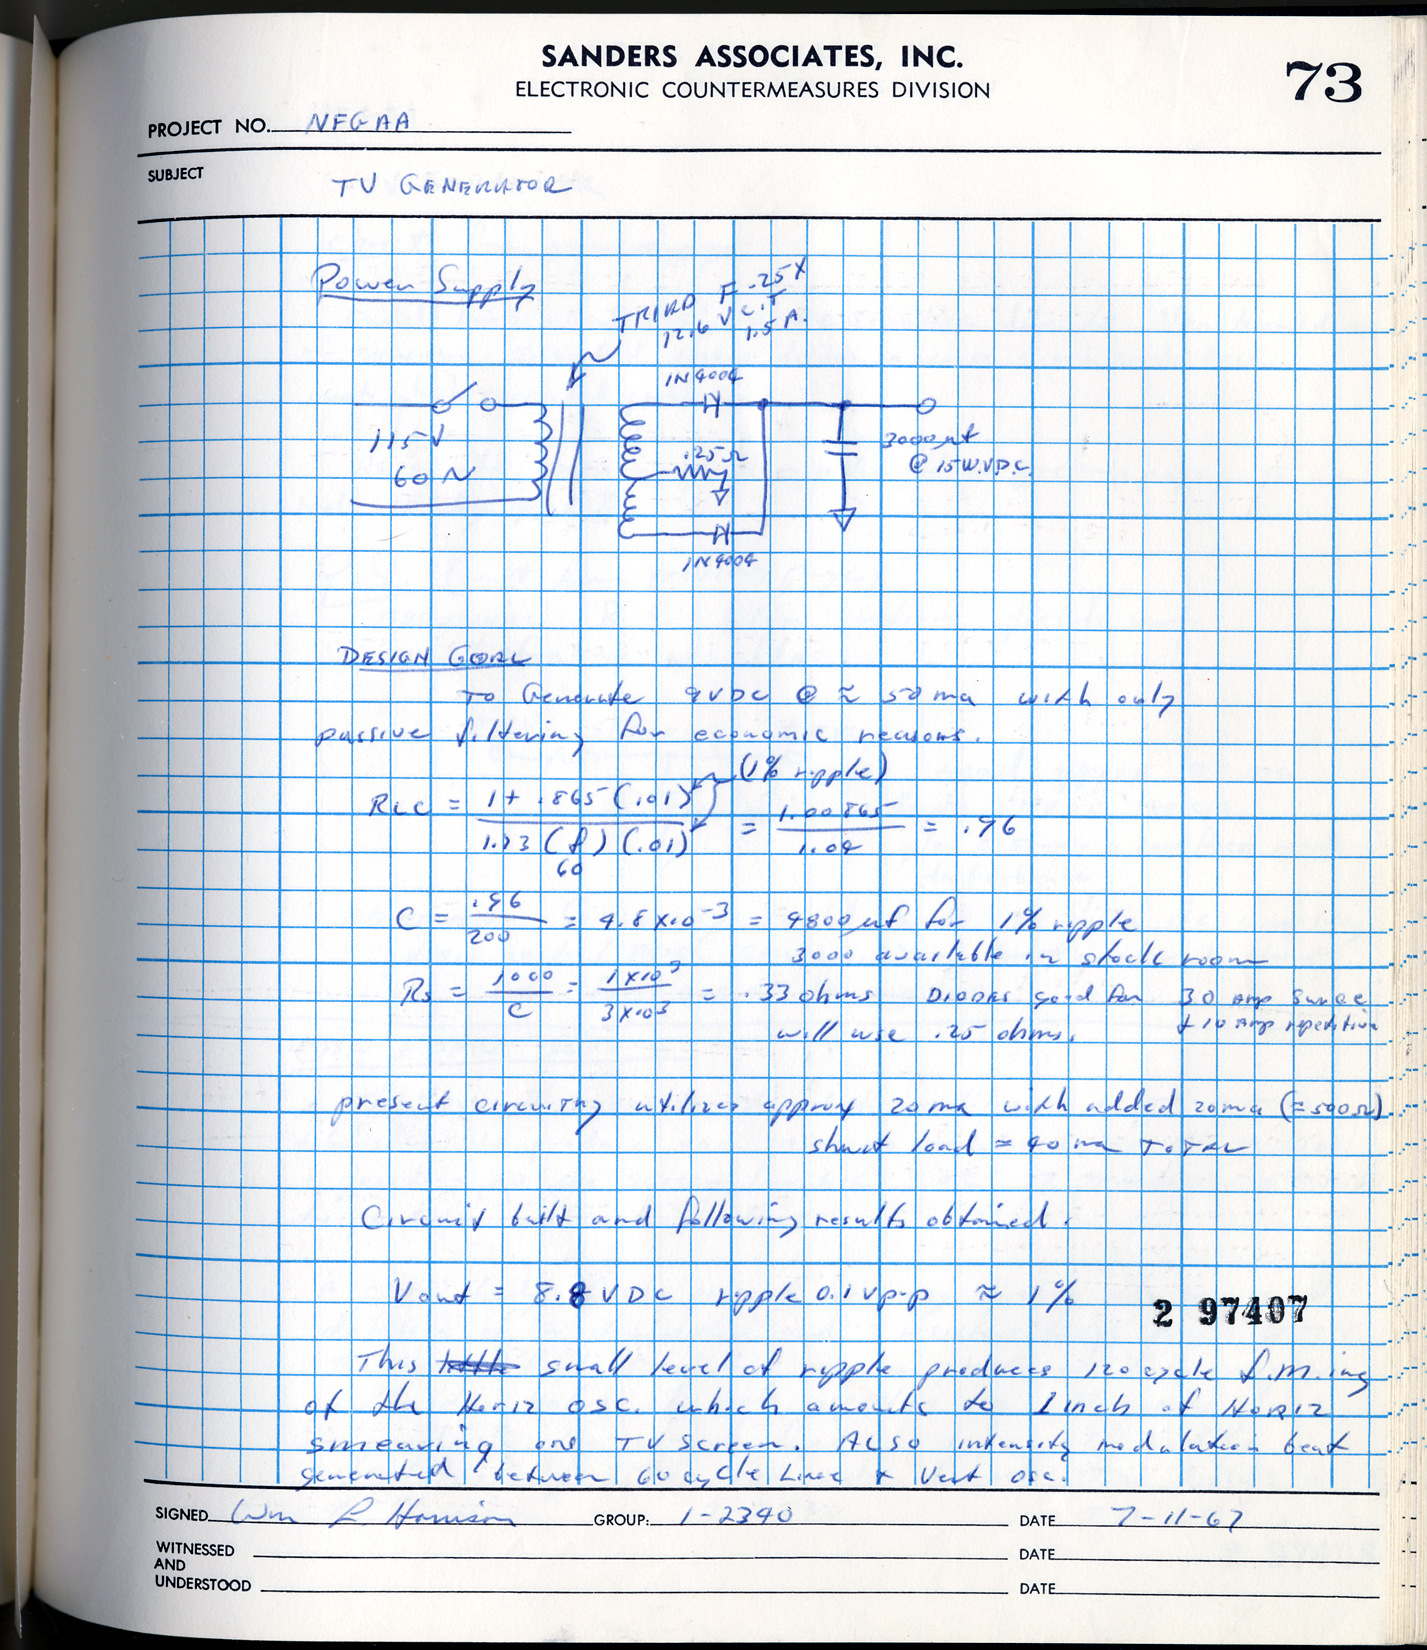 SANDERS ASSOCIATES, INC.
ELECTRONIC COUNTERMEASURES DIVISION
73
PROJECT NO. NFGAA
SUBJECT
TV GENERATOR
Power Supply
TRIAD F-25X
12.6 V C.T
1.5 A.
1N4004
115 V
60 N
.25Ω
3000 µf
@ 15W.V.D.C.
1N4004
DESIGN GOAL
To Generate 9VDC @ ≈ 50 ma with only
passive filtering for economic reasons.
(1% ripple)
RLC = 1 + .865 (.01) / 1.73 (f) (.01) = 1.00865 / 1.04 = .96
60
C = .96 / 200 = 4.8 x 10⁻³ = 4800 µf for 1% ripple
3000 available in stock room
Rs = 1000 / C = 1 x 10³ / 3 x 10³ = .33 ohms Diodes good for 30 amp surge
will use .25 ohms. & 10 amp repetitive
present circuitry utilizes approx 20 ma with added 20 ma (= 500Ω)
shunt load = 40 ma TOTAL
Circuit built and following results obtained.
Vout = 8.8 VDC ripple 0.1 vp-p ≈ 1%
2 97407
This small level of ripple produces 120 cycle f.m.ing
of the Horiz osc. which amounts to 1 inch of Horiz
smearing on TV Screen. Also intensity modulation beat
generated between 60 cycle Line & Vert osc.
SIGNED Wm L Harrison GROUP: 1-2340 DATE 7-11-67
WITNESSED DATE
AND
UNDERSTOOD DATE